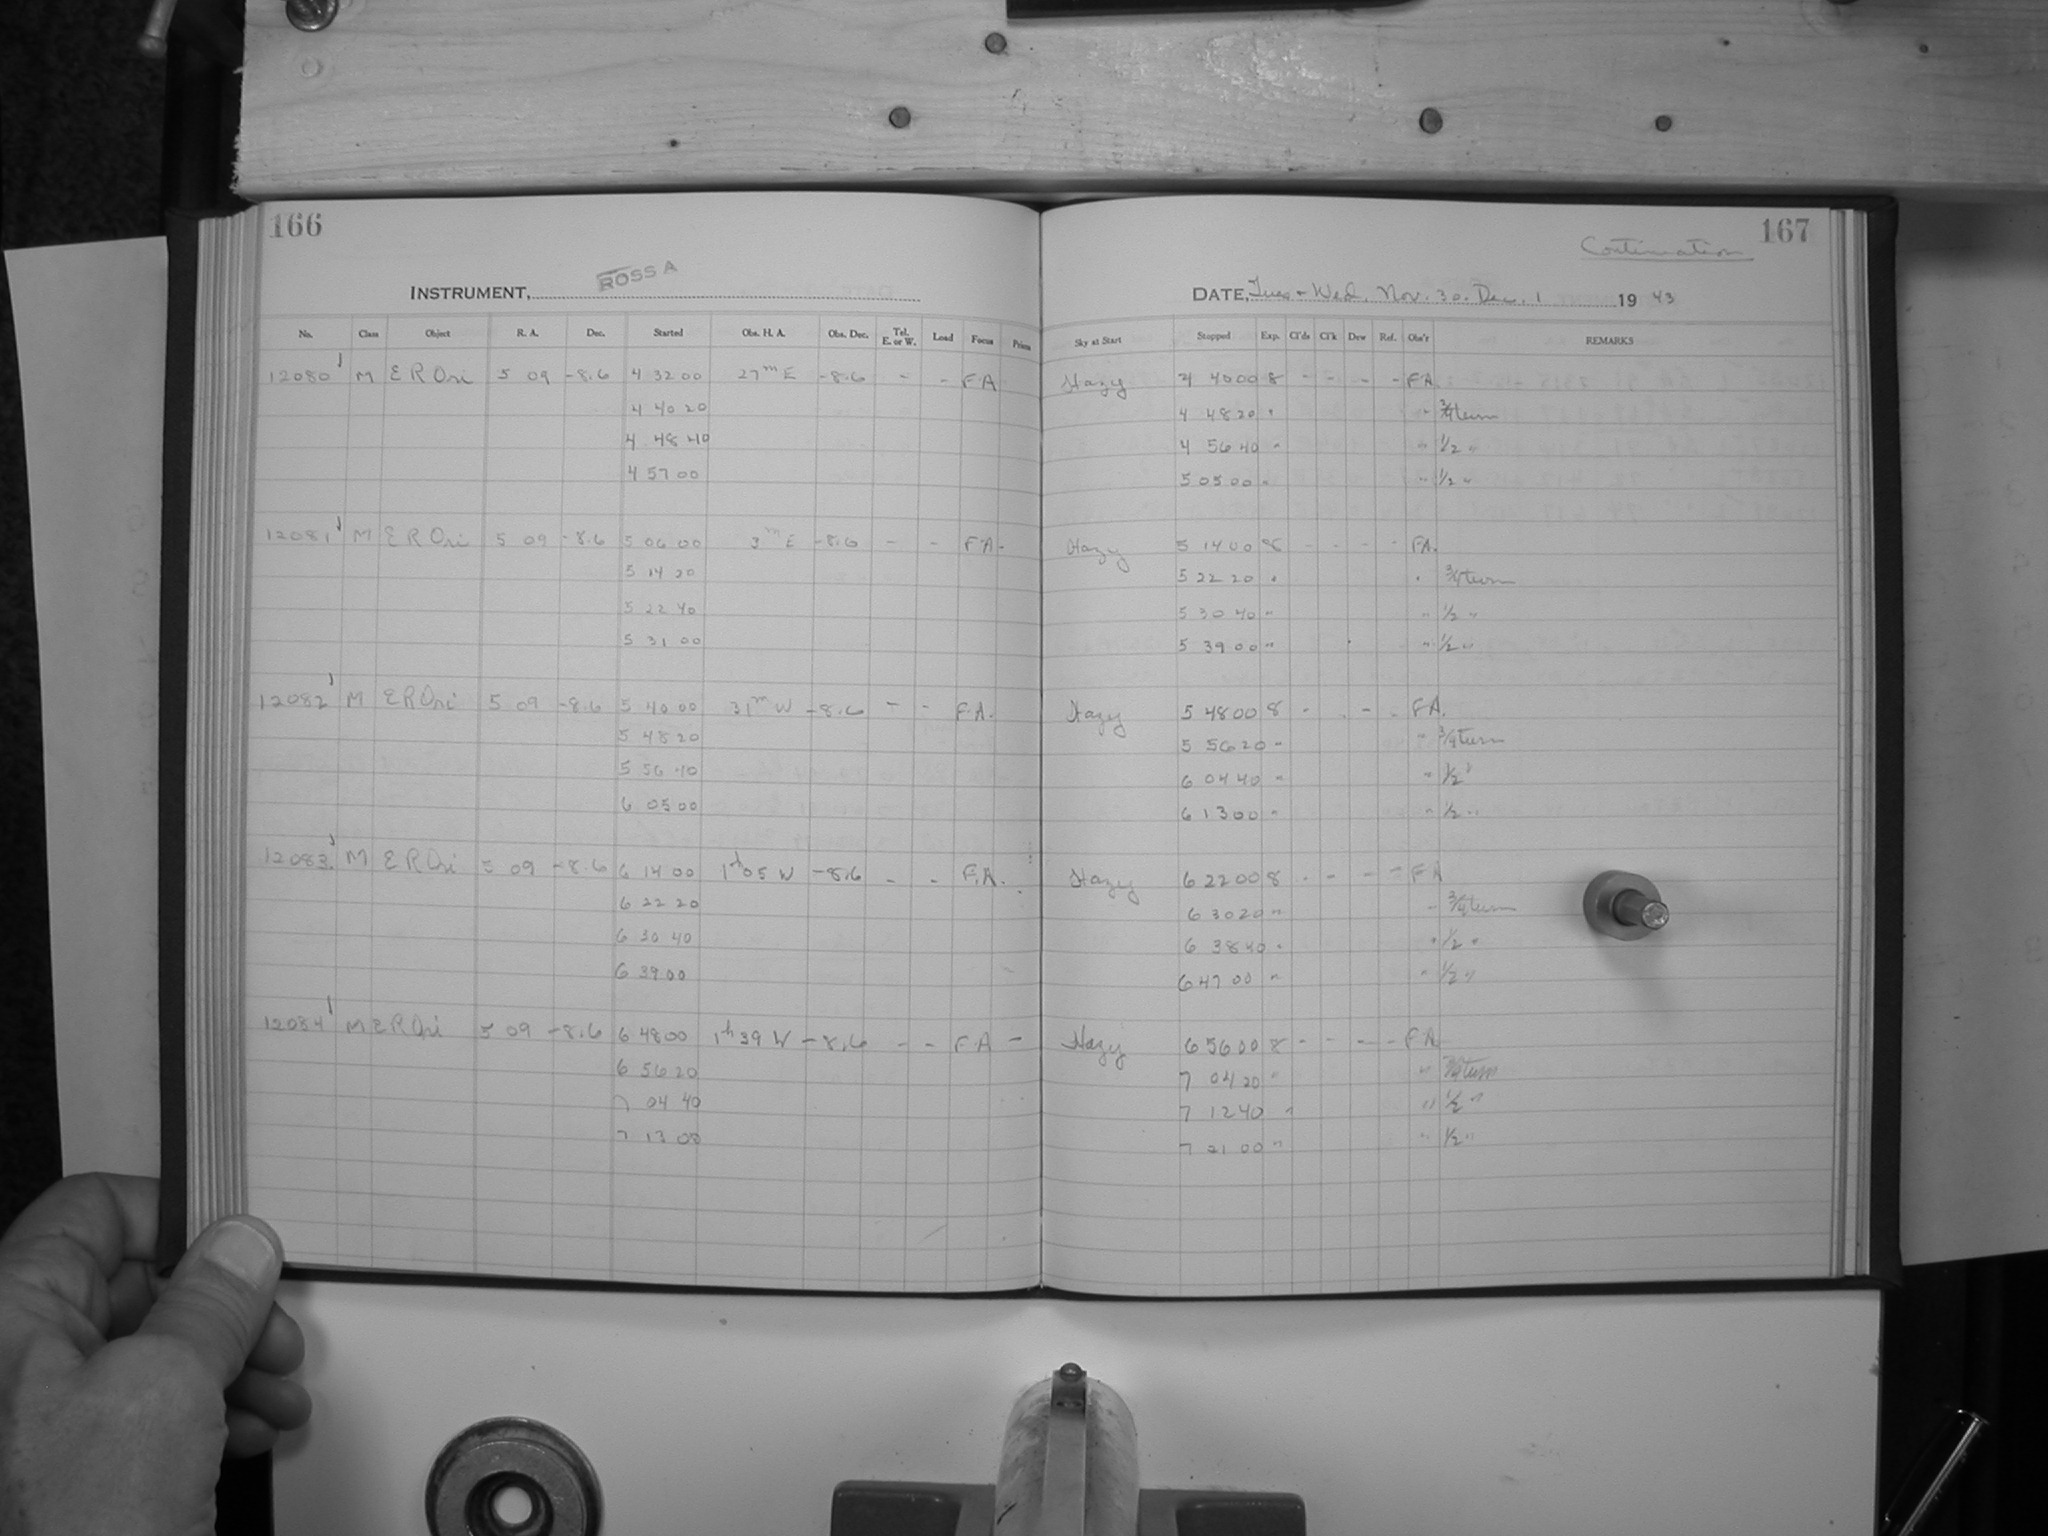 166
INSTRUMENT, ROSS A
No. Class Object R. A. Dec. Started Obs. H. A. Obs. Dec. Tel. E. or W. Load Focus Prism
12080 M E R Ori 5 09 -8.6 4 32 00 27m E -8.6 - - F A
4 40 20
4 48 40
4 57 00
12081 M E R Ori 5 09 -8.6 5 06 00 3m E -8.6 - - F A -
5 14 20
5 22 40
5 31 00
12082 M E R Ori 5 09 -8.6 5 40 00 31m W -8.6 - - F.A.
5 48 20
5 56 40
6 05 00
12083 M E R Ori 5 09 -8.6 6 14 00 1h 05 W -8.6 - - F.A.
6 22 20
6 30 40
6 39 00
12084 M E R Ori 5 09 -8.6 6 48 00 1h 39 W -8.6 - - F A -
6 56 20
7 04 40
7 13 00
167
Continuation
DATE, Tues - Wed. Nov. 30. Dec. 1 19 43
Sky at Start Stopped Exp. Cl'ds Cl'k Dew Ref. Obs'r REMARKS
Hazy 4 40 00 8 - - - - FA
4 48 20 " " 3/4 turn
4 56 40 " " 1/2 "
5 05 00 " " 1/2 "
Hazy 5 14 00 8 - - - - FA.
5 22 20 " " 3/4 turn
5 30 40 " " 1/2 "
5 39 00 " " 1/2 "
Hazy 5 48 00 8 - - - - FA.
5 56 20 " " 3/4 turn
6 04 40 " " 1/2 "
6 13 00 " " 1/2 "
Hazy 6 22 00 8 - - - - FA
6 30 20 " " 3/4 turn
6 38 40 " " 1/2 "
6 47 00 " " 1/2 "
Hazy 6 56 00 8 - - - - FA
7 04 20 " " 3/4 turn
7 12 40 " " 1/2 "
7 21 00 " " 1/2 "